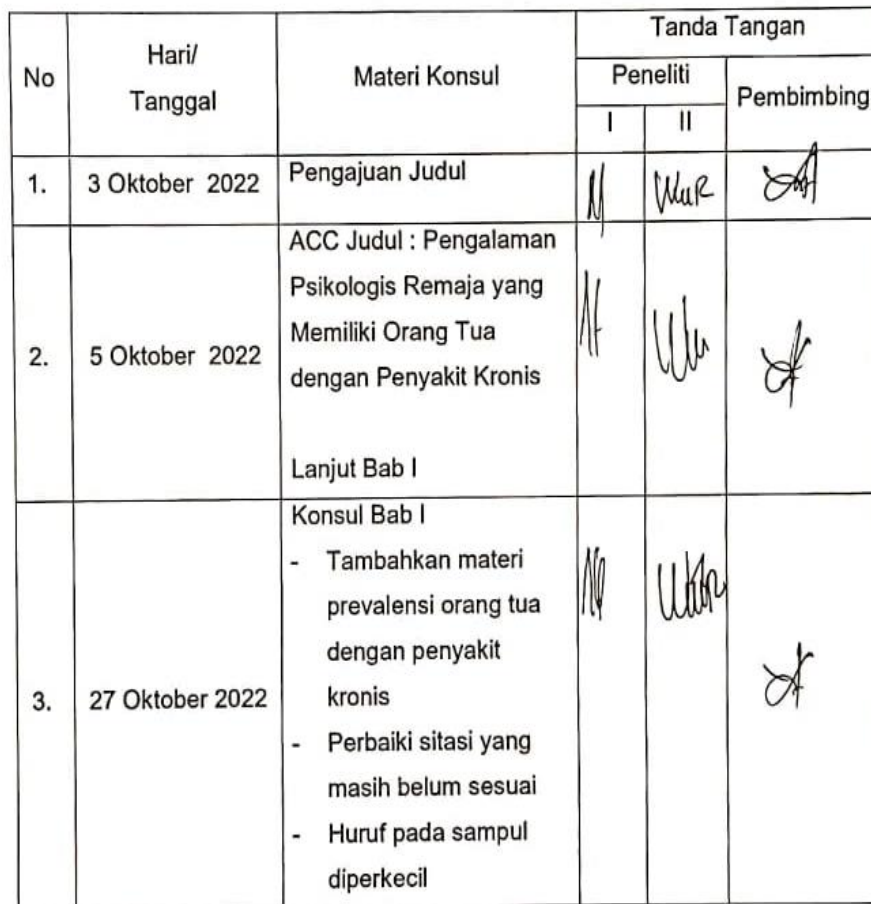 No
Hari/
Tanggal
Materi Konsul
Tanda Tangan
Peneliti
Pembimbing
I
II
1.
3 Oktober 2022
Pengajuan Judul
2.
5 Oktober 2022
ACC Judul : Pengalaman
Psikologis Remaja yang
Memiliki Orang Tua
dengan Penyakit Kronis
Lanjut Bab I
3.
27 Oktober 2022
Konsul Bab I
- Tambahkan materi
prevalensi orang tua
dengan penyakit
kronis
- Perbaiki sitasi yang
masih belum sesuai
- Huruf pada sampul
diperkecil